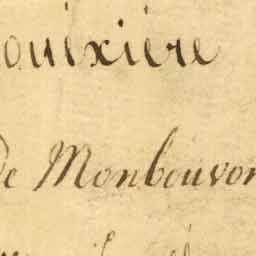 ouixière
de Monbouvon